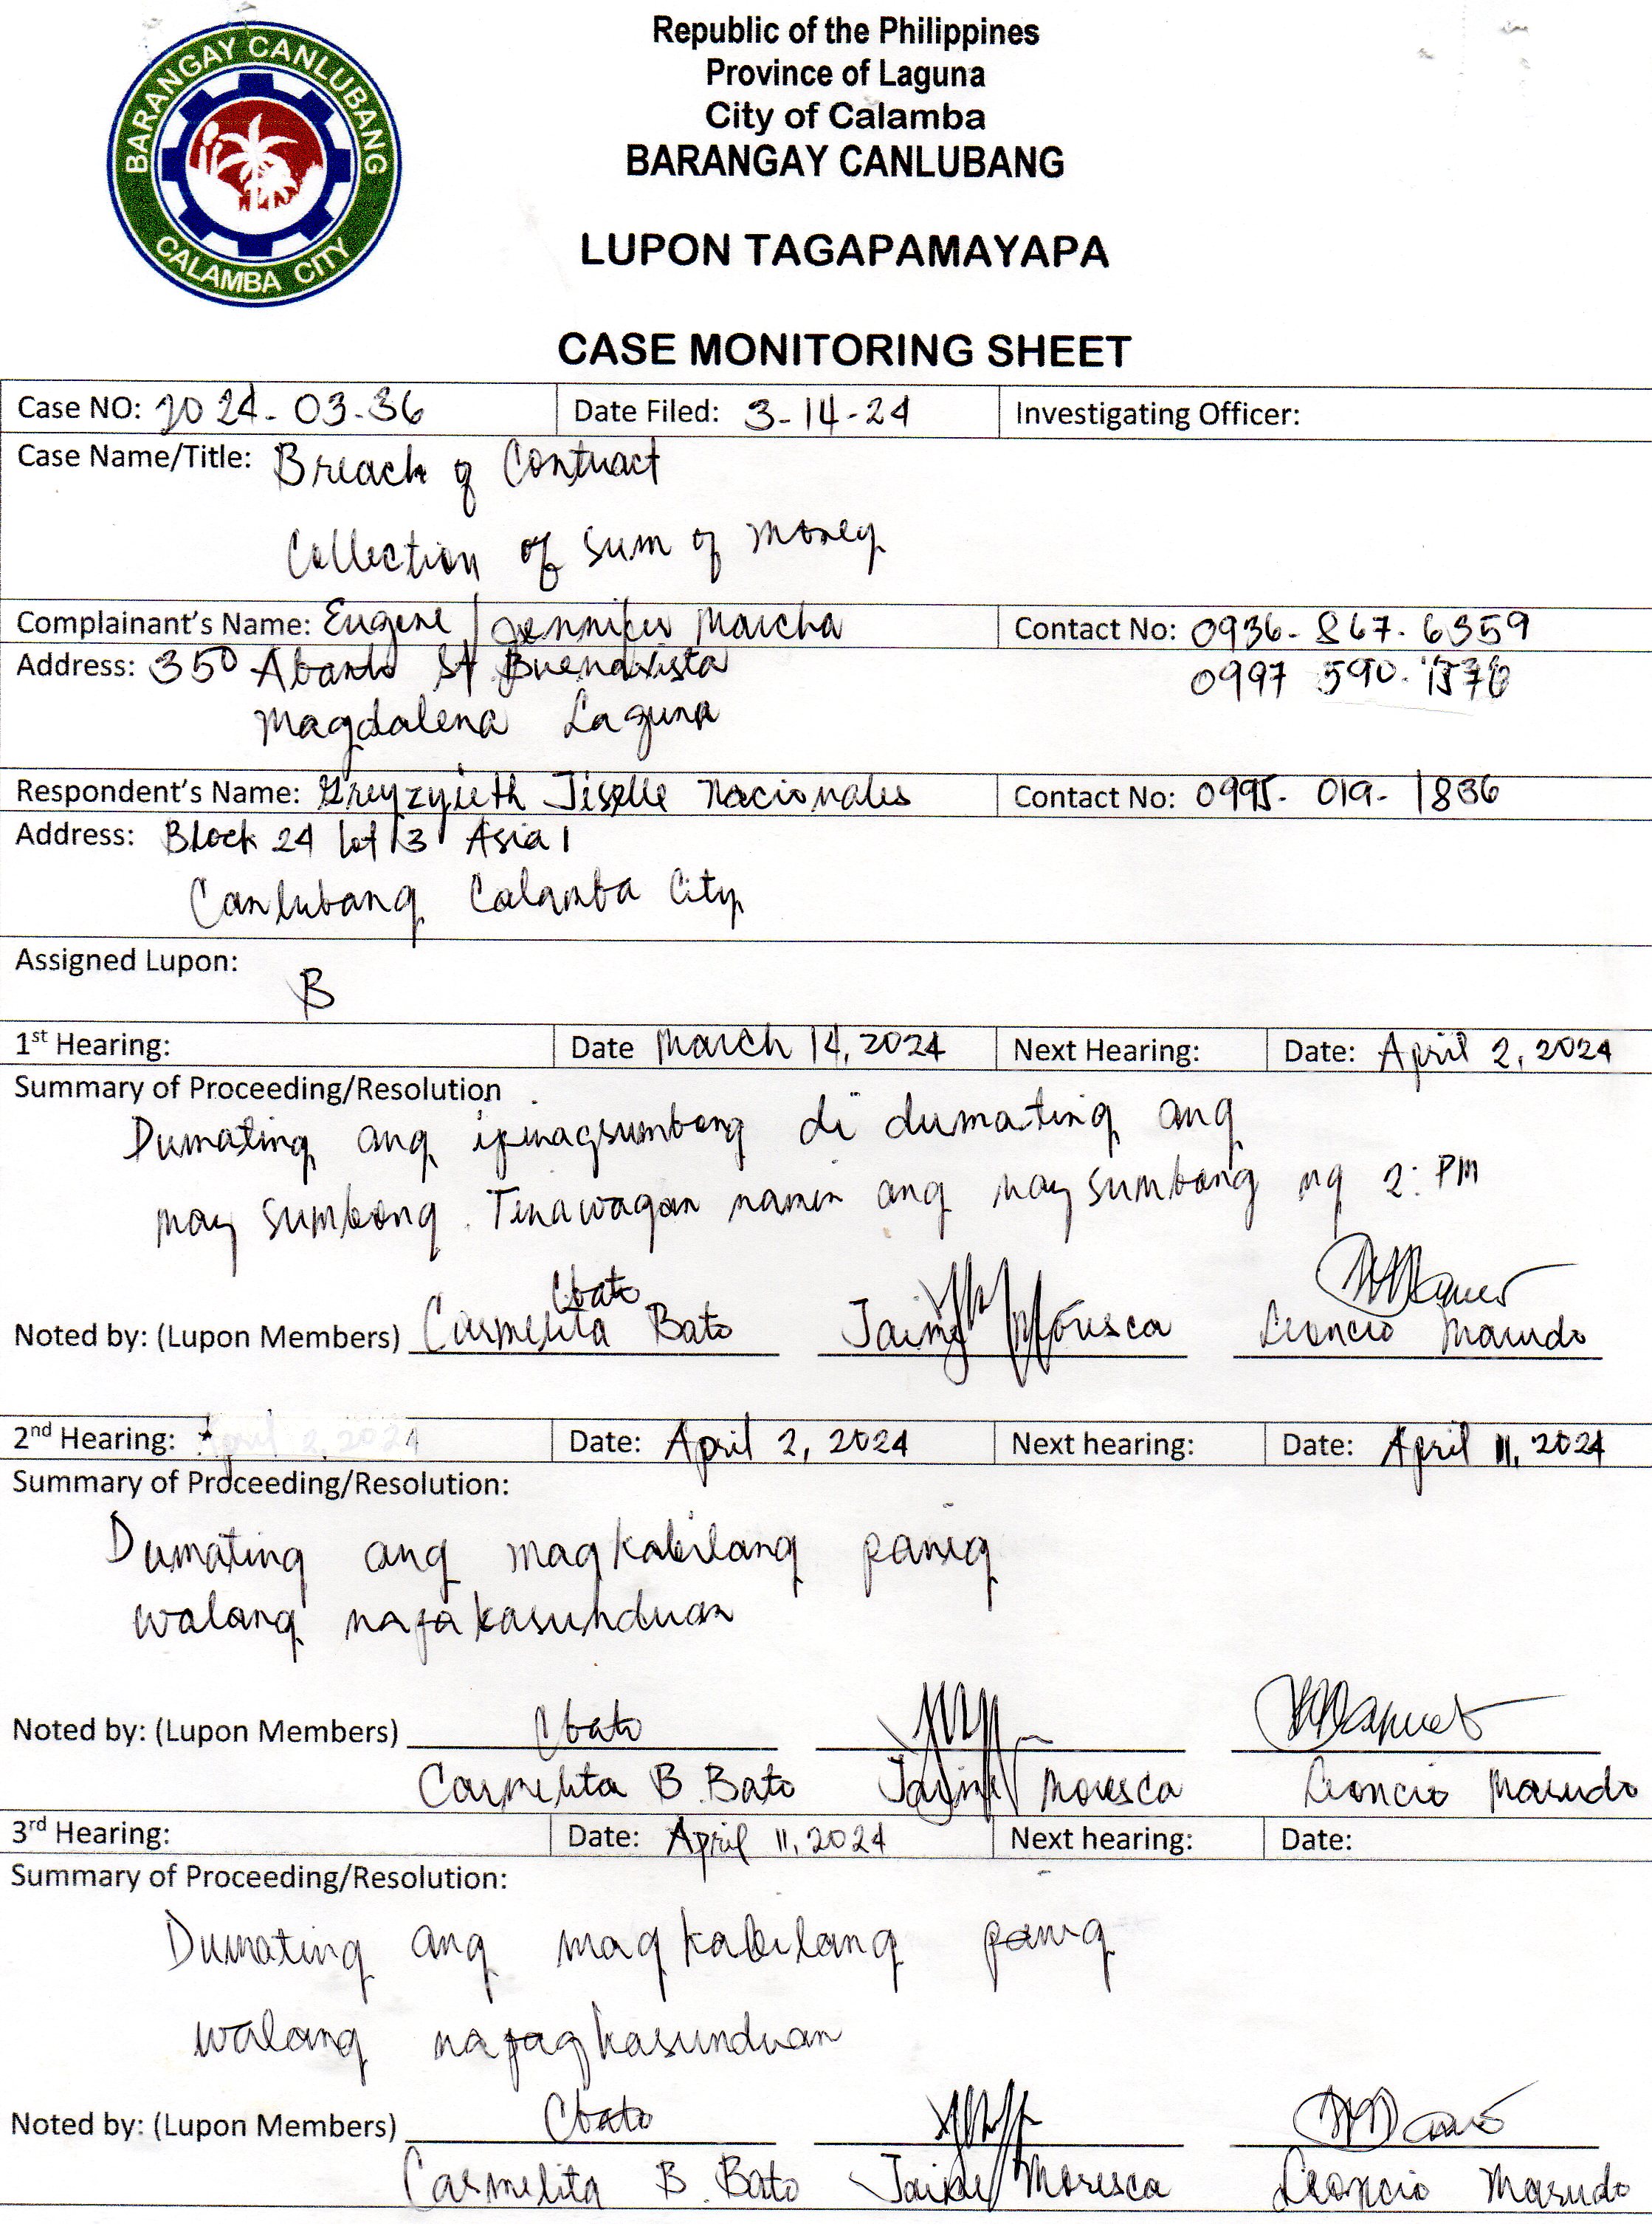 BARANGAY CANLUBANG
CALAMBA CITY
Republic of the Philippines
Province of Laguna
City of Calamba
BARANGAY CANLUBANG
LUPON TAGAPAMAYAPA
CASE MONITORING SHEET
Case NO: 2024-03-36 Date Filed: 3-14-24 Investigating Officer:
Case Name/Title: Breach of Contract
Collection of sum of money
Complainant's Name: Eugene / Jennifer Marcha Contact No: 0936-867-6359
Address: 350 St Buenavista 0997 590
Magdalena Laguna
Respondent's Name: Greyzyieth Jiselle Nacionales Contact No: 0995-019-1836
Address: Block 24 lot 13 Asia 1
Canlubang Calamba City
Assigned Lupon:
B
1st Hearing: Date March 14, 2024 Next Hearing: Date: April 2, 2024
Summary of Proceeding/Resolution
Dumating ang ipinagsumbong di dumating ang
may sumbong. Tinawagan namin ang may sumbong ng 2: PM
Cbato
Noted by: (Lupon Members) Carmelita Bato Jaime Moresca Leoncio Marudo
2nd Hearing: April 2, 2024 Date: April 2, 2024 Next hearing: Date: April 11, 2024
Summary of Proceeding/Resolution:
Dumating ang magkabilang panig
walang napakasunduan
Noted by: (Lupon Members) Cbato
Carmelita B. Bato Jaime Moresca Leoncio Marudo
3rd Hearing: Date: April 11, 2024 Next hearing: Date:
Summary of Proceeding/Resolution:
Dumating ang magkabilang panig
walang napagkasunduan
Noted by: (Lupon Members) Cbato
Carmelita B. Bato Jaime Moresca Leoncio Marudo